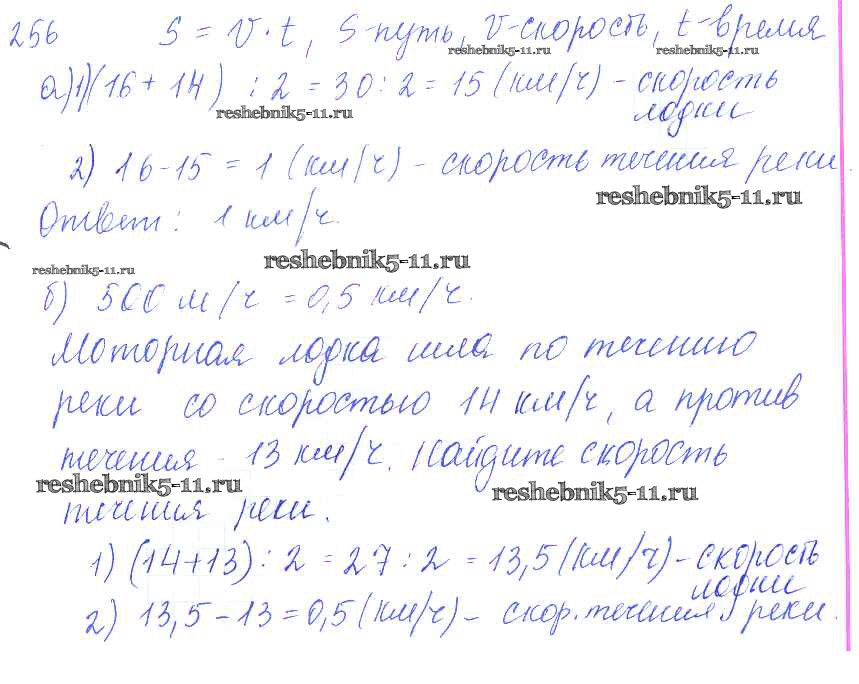 256 S = V · t, S-путь, V-скорость, t-время
reshebnik5-11.ru reshebnik5-11.ru
а) 1) (16 + 14) : 2 = 30 : 2 = 15 (км/ч) - скорость
reshebnik5-11.ru лодки
2) 16 - 15 = 1 (км/ч) - скорость течения реки
reshebnik5-11.ru
Ответ: 1 км/ч.
reshebnik5-11.ru
reshebnik5-11.ru
б) 500 м/ч = 0,5 км/ч.
Моторная лодка шла по течению
реки со скоростью 14 км/ч, а против
течения - 13 км/ч. Найдите скорость
reshebnik5-11.ru reshebnik5-11.ru
течения реки.
1) (14+13) : 2 = 27 : 2 = 13,5 (км/ч) - скорость
лодки
2) 13,5 - 13 = 0,5 (км/ч) - скор. течения реки.